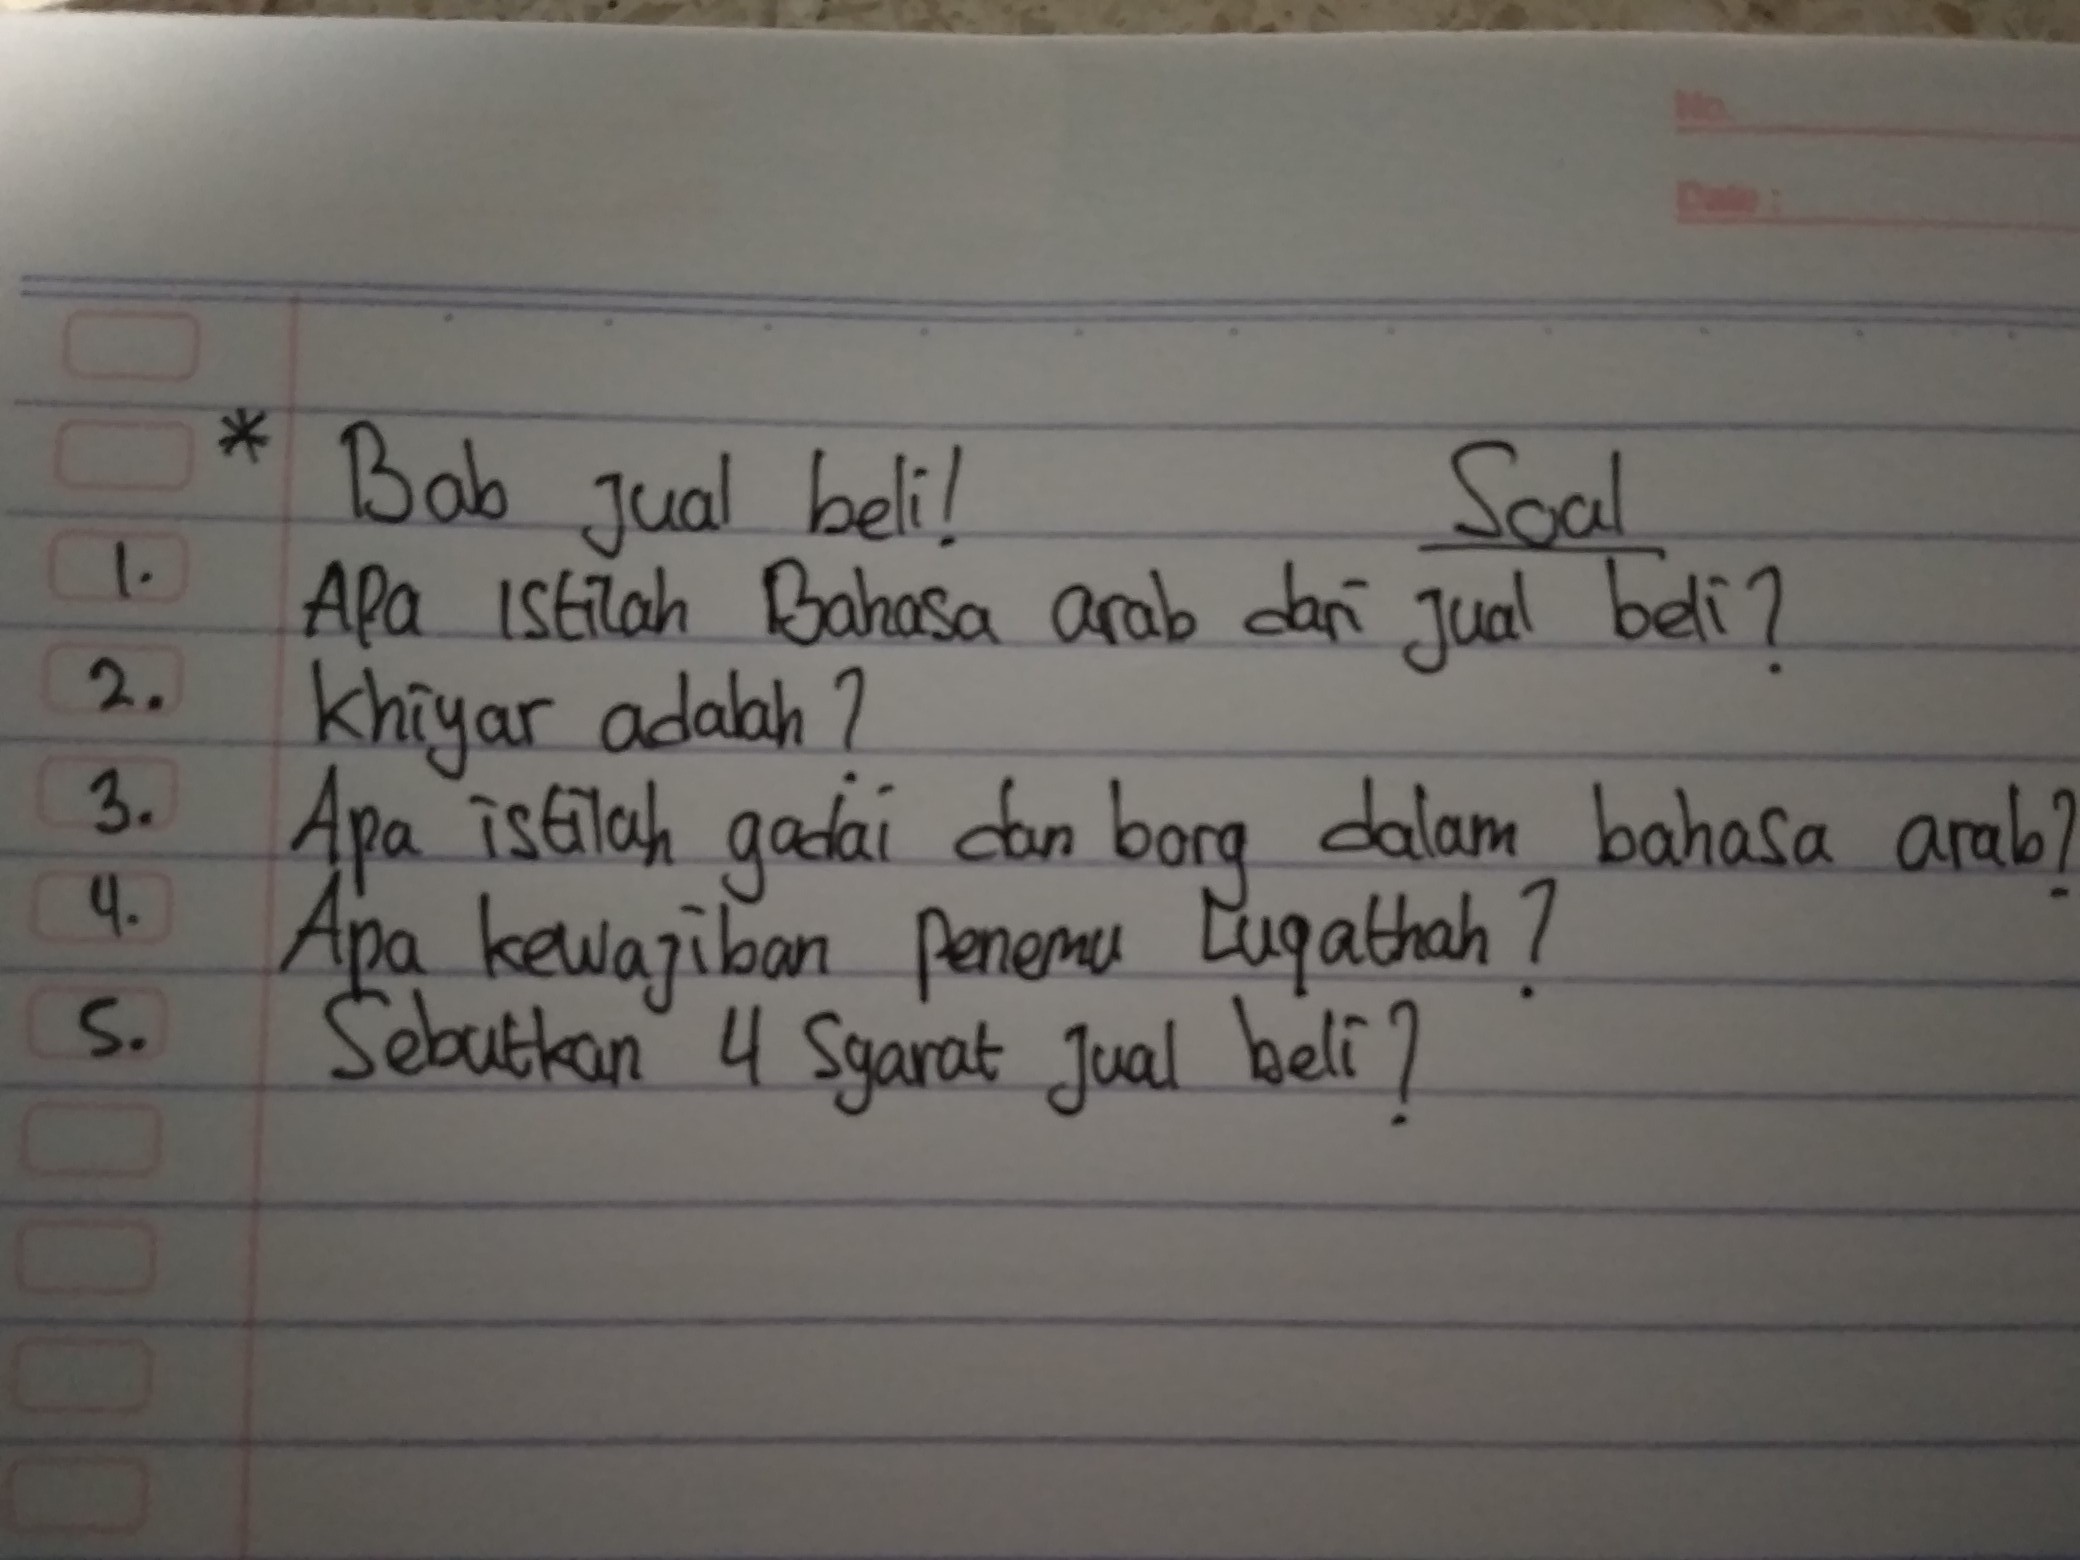 No.
Date :
* Bab jual beli! Soal
1. Apa istilah Bahasa arab dari jual beli?
2. Khiyar adalah?
3. Apa istilah gadai dan borg dalam bahasa arab?
4. Apa kewajiban penemu Luqathah?
5. Sebutkan 4 Syarat jual beli?